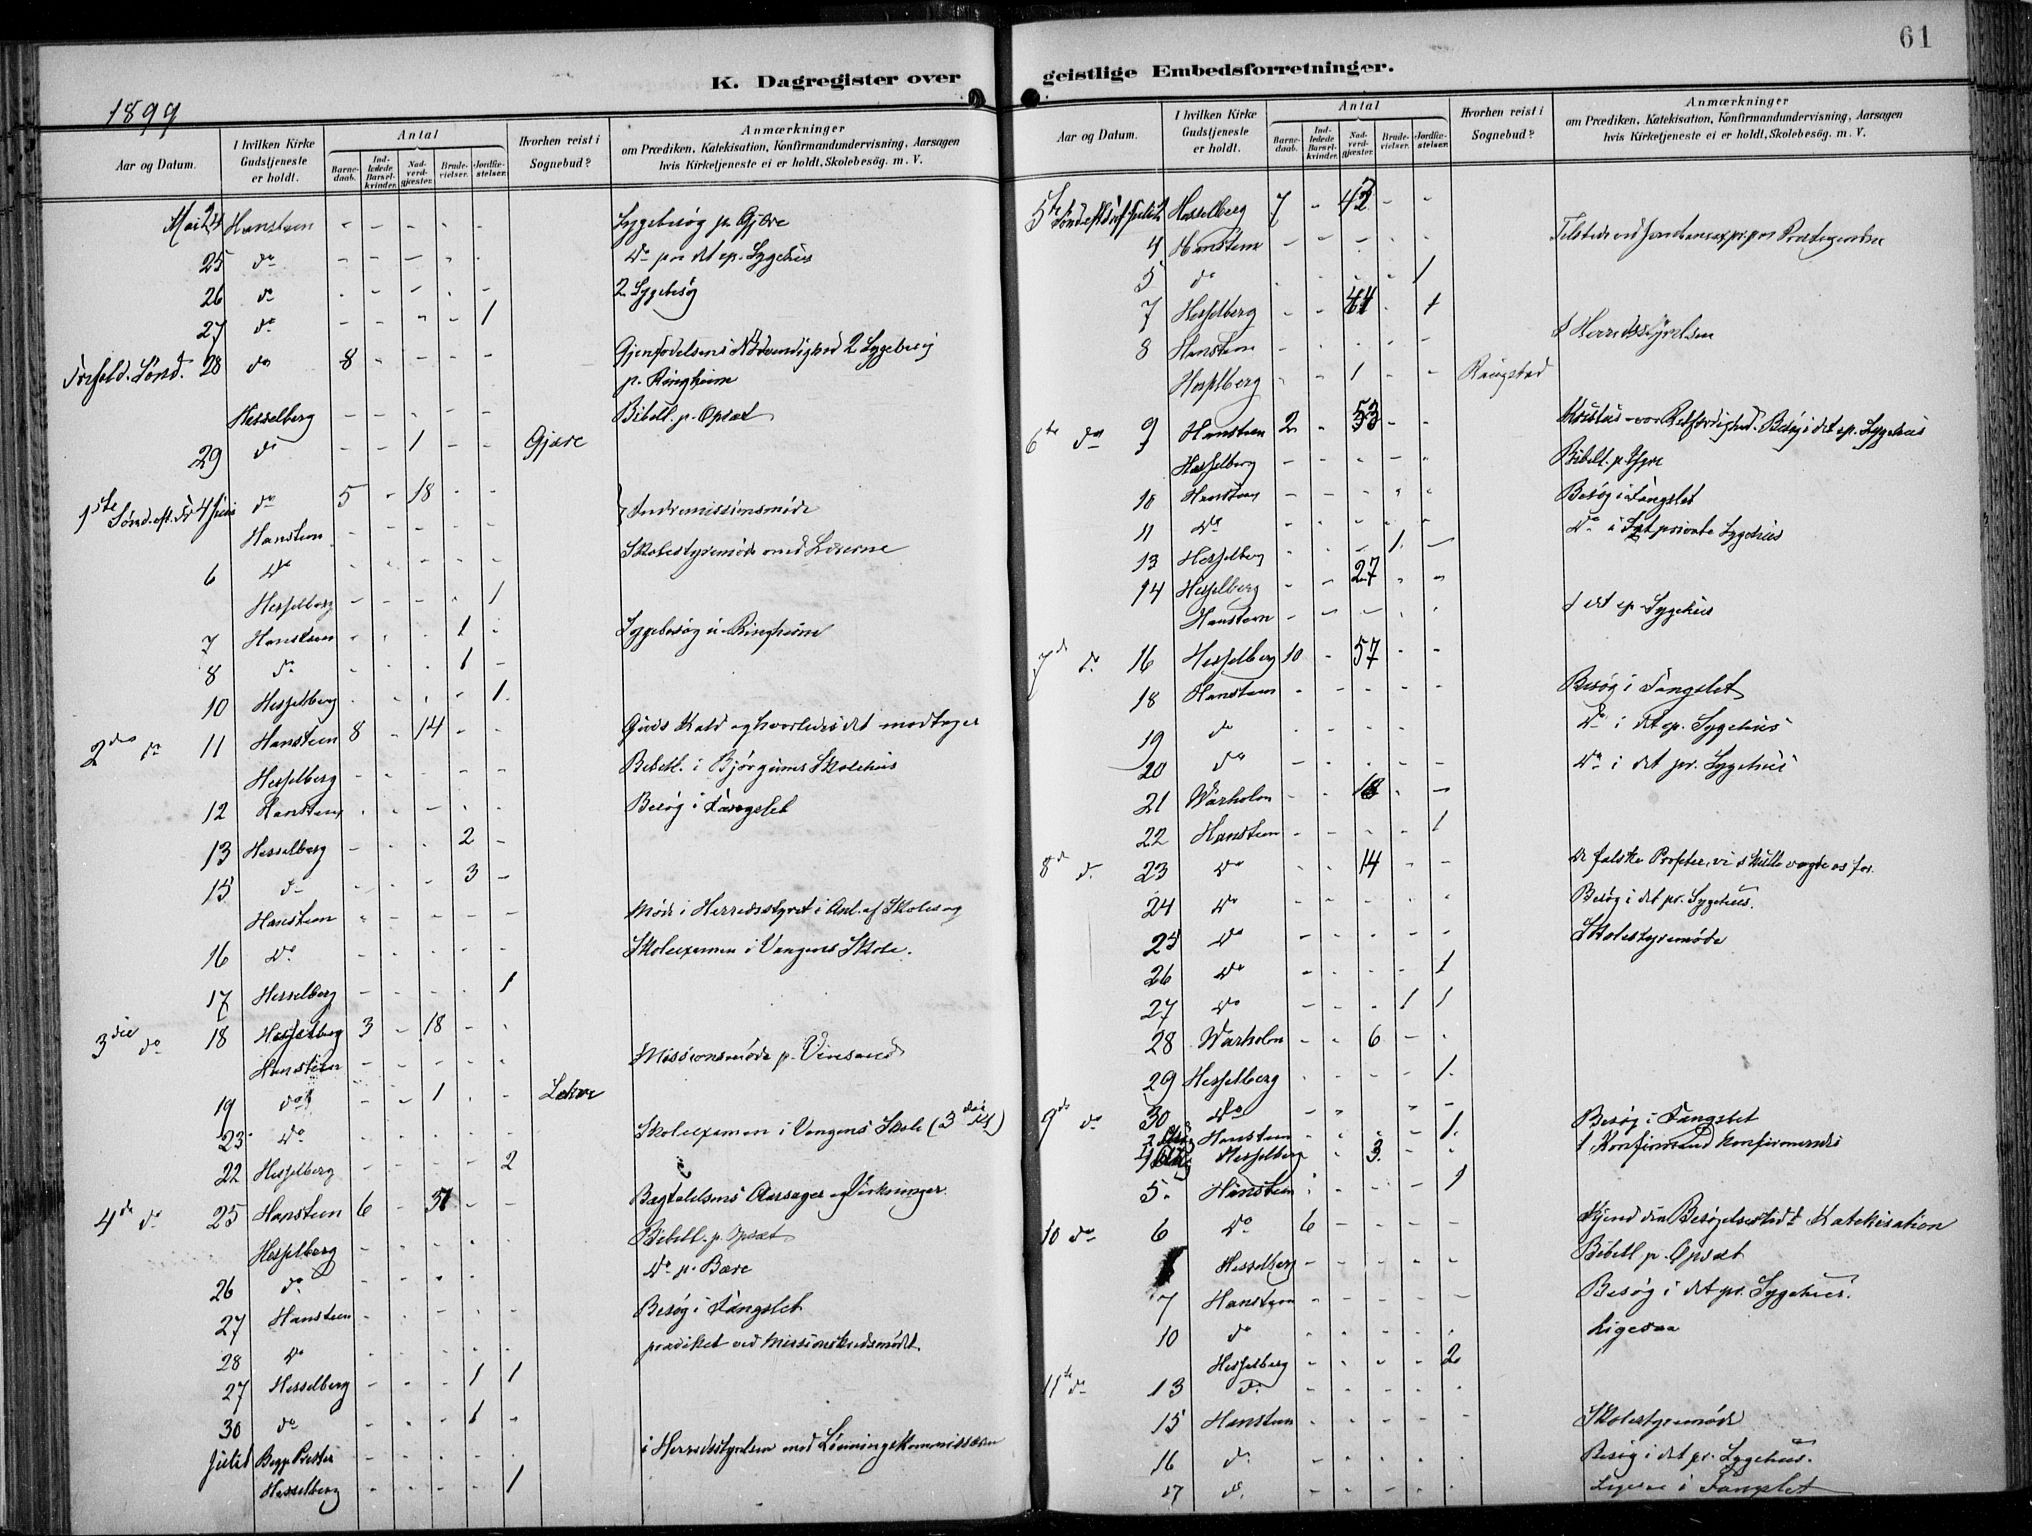 61
K. Dagregister over geistlige Embedsforretninger.
1899
Aar og Datum.
I hvilken Kirke Gudstjeneste er holdt.
Antal
Barnedaab.
Indledede Barselkvinder.
Nadverdgjæster.
Brudevielser.
Jordfæstelser.
Hvorhen reist i Sognebud?
Anmærkninger
om Prædiken, Katekisation, Konfirmandundervisning, Aarsagen
hvis Kirketjeneste ei er holdt, Skolebesøg. m. V.
Mai 24 Hansteen - - - - - Sygebesøg p. Gjære
25 do - - - - - Do paa det ep. Sygehus
26 do - - - - - 2 Sygebesøg
27 do - - - - 1
Trefold. Sønd. 28 do 8 - - - - Gjenfødelsens Nødvendighed 2 Sygebesøg
p. Ringheim
Hesselberg - - - - - Bibell. p. Opsæt
29 do - - 1 - - Gjære
1ste Sønd. eft. Tr. 4 Juni do 5 - 18 - - } Indremissionsmøde
Hansteen - - - - -
6 Do - - - - - Skolestyremøde med Lærerne
Hesselberg - - - - 1
7 Hansteen - - - 1 - Sygebesøg i Ringheim
8 do - - - 1 -
10 Hesselberg - - - - 1
2den do 11 Hansteen 8 - 14 - - Guds Kald og hvorledes det modtages
Hesselberg - - - - - Bibell. i Bjørgums Skolehus
12 Hansteen - - - - - Besøg i Fængslet
13 Hesselberg - - - 2 -
15 do - - - 3 -
Hansteen - - - - - Møde i Herredsstyret i Anl. af Skolesag
16 Do - - - - - Skoleexamen i Vangens Skole.
17 Hesselberg - - - - 1
3die do 18 Hesselberg 3 - 18 - -
Hansteen - - - - - Missionsmøde p. Vinsand
19 do - - 1 - - Lekve
23 Do - - - - - Skoleexamen i Vangens Skole (3die Kl)
22 Hesselberg - - - - 2
4de do 25 Hansteen 6 - 31 - - Bagtalelsens Aarsager og Virkninger.
Hesselberg - - - - - Bibell. p. Opsæt
26 do - - - - - Do p. Bære
27 Hansteen - - - - - Besøg i Fængslet
28 Do - - - - - prædiket ved Missionskredsmødet
27 Hesselberg - - - 1 1
30 do - - - 1 -
Juli 1 Begge Prester i Herredsstyrelsen med Lønningskommissæren
Hesselberg - - - - 1
Aar og Datum.
I hvilken Kirke Gudstjeneste er holdt.
Antal
Barnedaab.
Indledede Barselkvinder.
Nadverdgjæster.
Brudevielser.
Jordfæstelser.
Hvorhen reist i Sognebud?
Anmærkninger
om Prædiken, Katekisation, Konfirmandundervisning, Aarsagen
hvis Kirketjeneste ei er holdt, Skolebesøg. m. V.
5te Sønd. eft. Tref. Juli 2 Hesselberg 7 - 42 - -
4 Hansteen - - - - -
5 do - - - - 1
7 Hesselberg - - 41 - 1
8 Hansteen - - - - - i Herredsstyrelsen
Hesselberg - - 1 - - Ringstad
6te do 9 Hansteen 2 - 53 - - Kristus vor Retfærdighed. Besøg i det ep. Sygehus
Hesselberg - - - - - Bibell. p.
10 Hansteen - - - - - Besøg i Fængslet
11 Do - - - - - Do i Det private Sygehus
13 Hesselberg - - - 1 -
14 Hesselberg - - 27 - -
Hansteen - - - - - i det ep. Sygehus
7de do 16 Hesselberg 10 - 57 - -
18 Hansteen - - - - - Besøg i Fængslet
19 do - - - - - Do i det ep. Sygehus
20 do - - - - - Do i det pr. Sygehus
21 Warholm - - 18 - -
22 Hansteen - - - - 1
8de do. 23 Do - - 14 - - De falske Profeter, vi skulle vogte os for.
24 Do - - - - - Besøg i det pr. Sygehus.
25 Do - - - - - Skolestyremøde
26 Do - - - - 1
27 Do - - - 1 1
28 Warholm - - 6 - -
29 Hesselberg - - - - 1
9de do 30 Do - - - - - Besøg i Fængslet
Hansteen - - - - 1
Hesselberg - - 3 - -
5. Hansteen - - - - 1
10 do 6 Do 6 - - - - Kjend din Besøgelsestid! Katekisation
Hesselberg - - - - - Bibell p. Opsæt
7 Hansteen - - - - - Besøg i det pr. Sygehus.
10 do - - - - - Ligesaa
Hesselberg - - - - 2
11te do 13 do - - - - -
15 Hansteen - - - - - Skolestyremøde
16 do - - - - - Besøg i det pr. Sygehus.
17 do. - - - - - Ligesaa i Fængslet